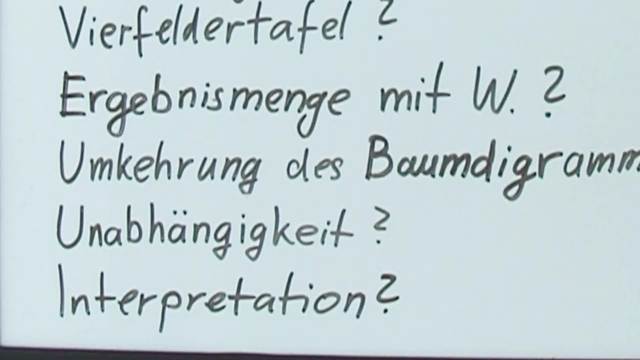 Vierfeldertafel ?
Ergebnismenge mit W. ?
Umkehrung des Baumdigramm
Unabhängigkeit ?
Interpretation ?